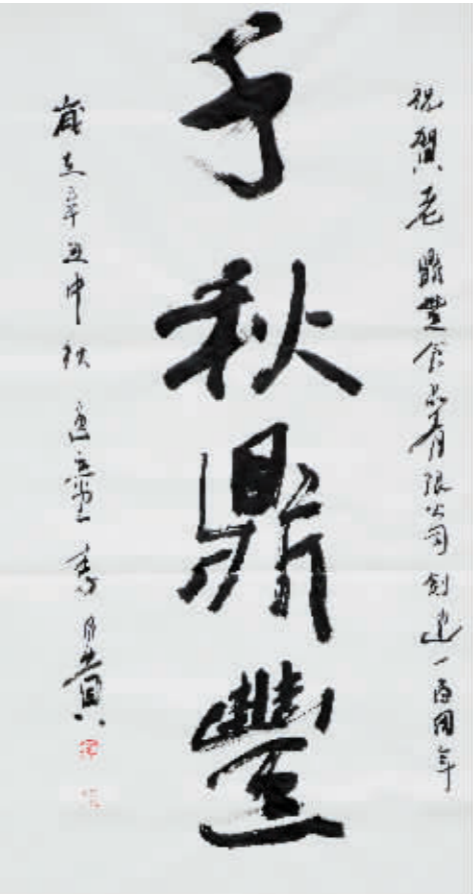 祝賀老鼎豐食品有限公司創建一百周年
千秋鼎豐
歲在辛丑中秋